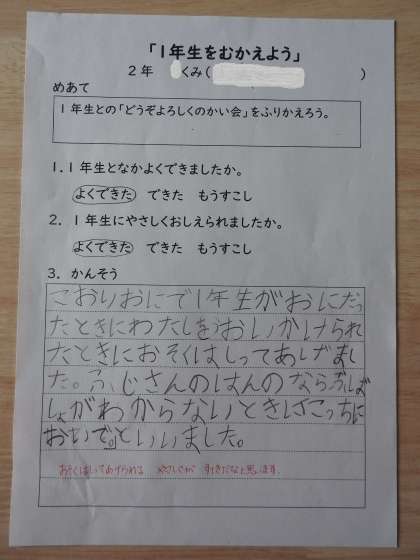 「1年生をむかえよう」
2年 くみ( )
めあて
1年生との「どうぞよろしくのかい会」をふりかえろう。
1. 1年生となかよくできましたか。
よくできた できた もうすこし
2. 1年生にやさしくおしえられましたか。
よくできた できた もうすこし
3. かんそう
こおりおにで1年生がおにだっ
たときにわたしをおいかけられ
たときにおそくはしってあげまし
た。ふじさんのはんのならぶば
しょがわからないときはこっちに
おいで。」といいました。
おそくはしってあげられる やさしさが すてきだなと思います。